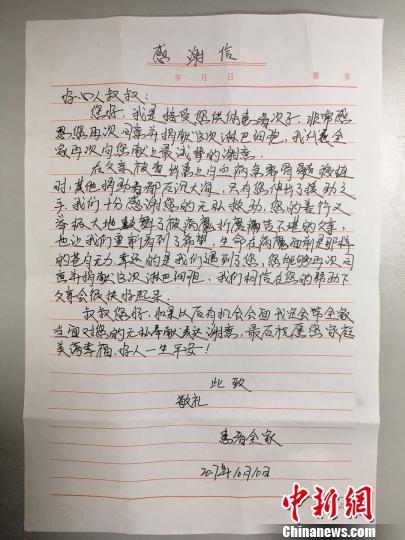 感谢信
年 月 日 第 页
好心人叔叔:
您好,我是接受您供体患者次子,非常感
恩您再次同意并捐献这次淋巴细胞,我代表全
家再次向您献上最诚挚的谢意。
在父亲被查出患上白血病急需骨髓移植
时,其他捐助者都石沉大海,只有您伸出了援助之
手,我们十分感谢您的无私救助,您的善行义
举极大地鼓舞了被病魔折磨痛苦不堪的父亲,
也让我们重新看到了希望,生命在病魔面前是那样
的苍白无力,幸运的是我们遇到了您,您能够再次同
意并捐献这次淋巴细胞,我们相信在您的帮助下
父亲会很快好起来。
叔叔您好,如果以后有机会会面我还会带全家
当面对您的无私奉献表达谢意,最后祝愿您家庭
美满幸福,好人一生平安!
此致
敬礼
患者全家
2017年10月10日
中新网
Chinanews.com